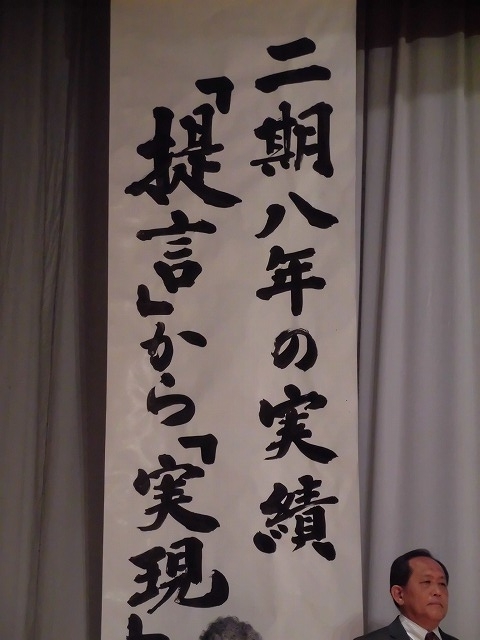 二期八年の実績
「提言」から「実現」